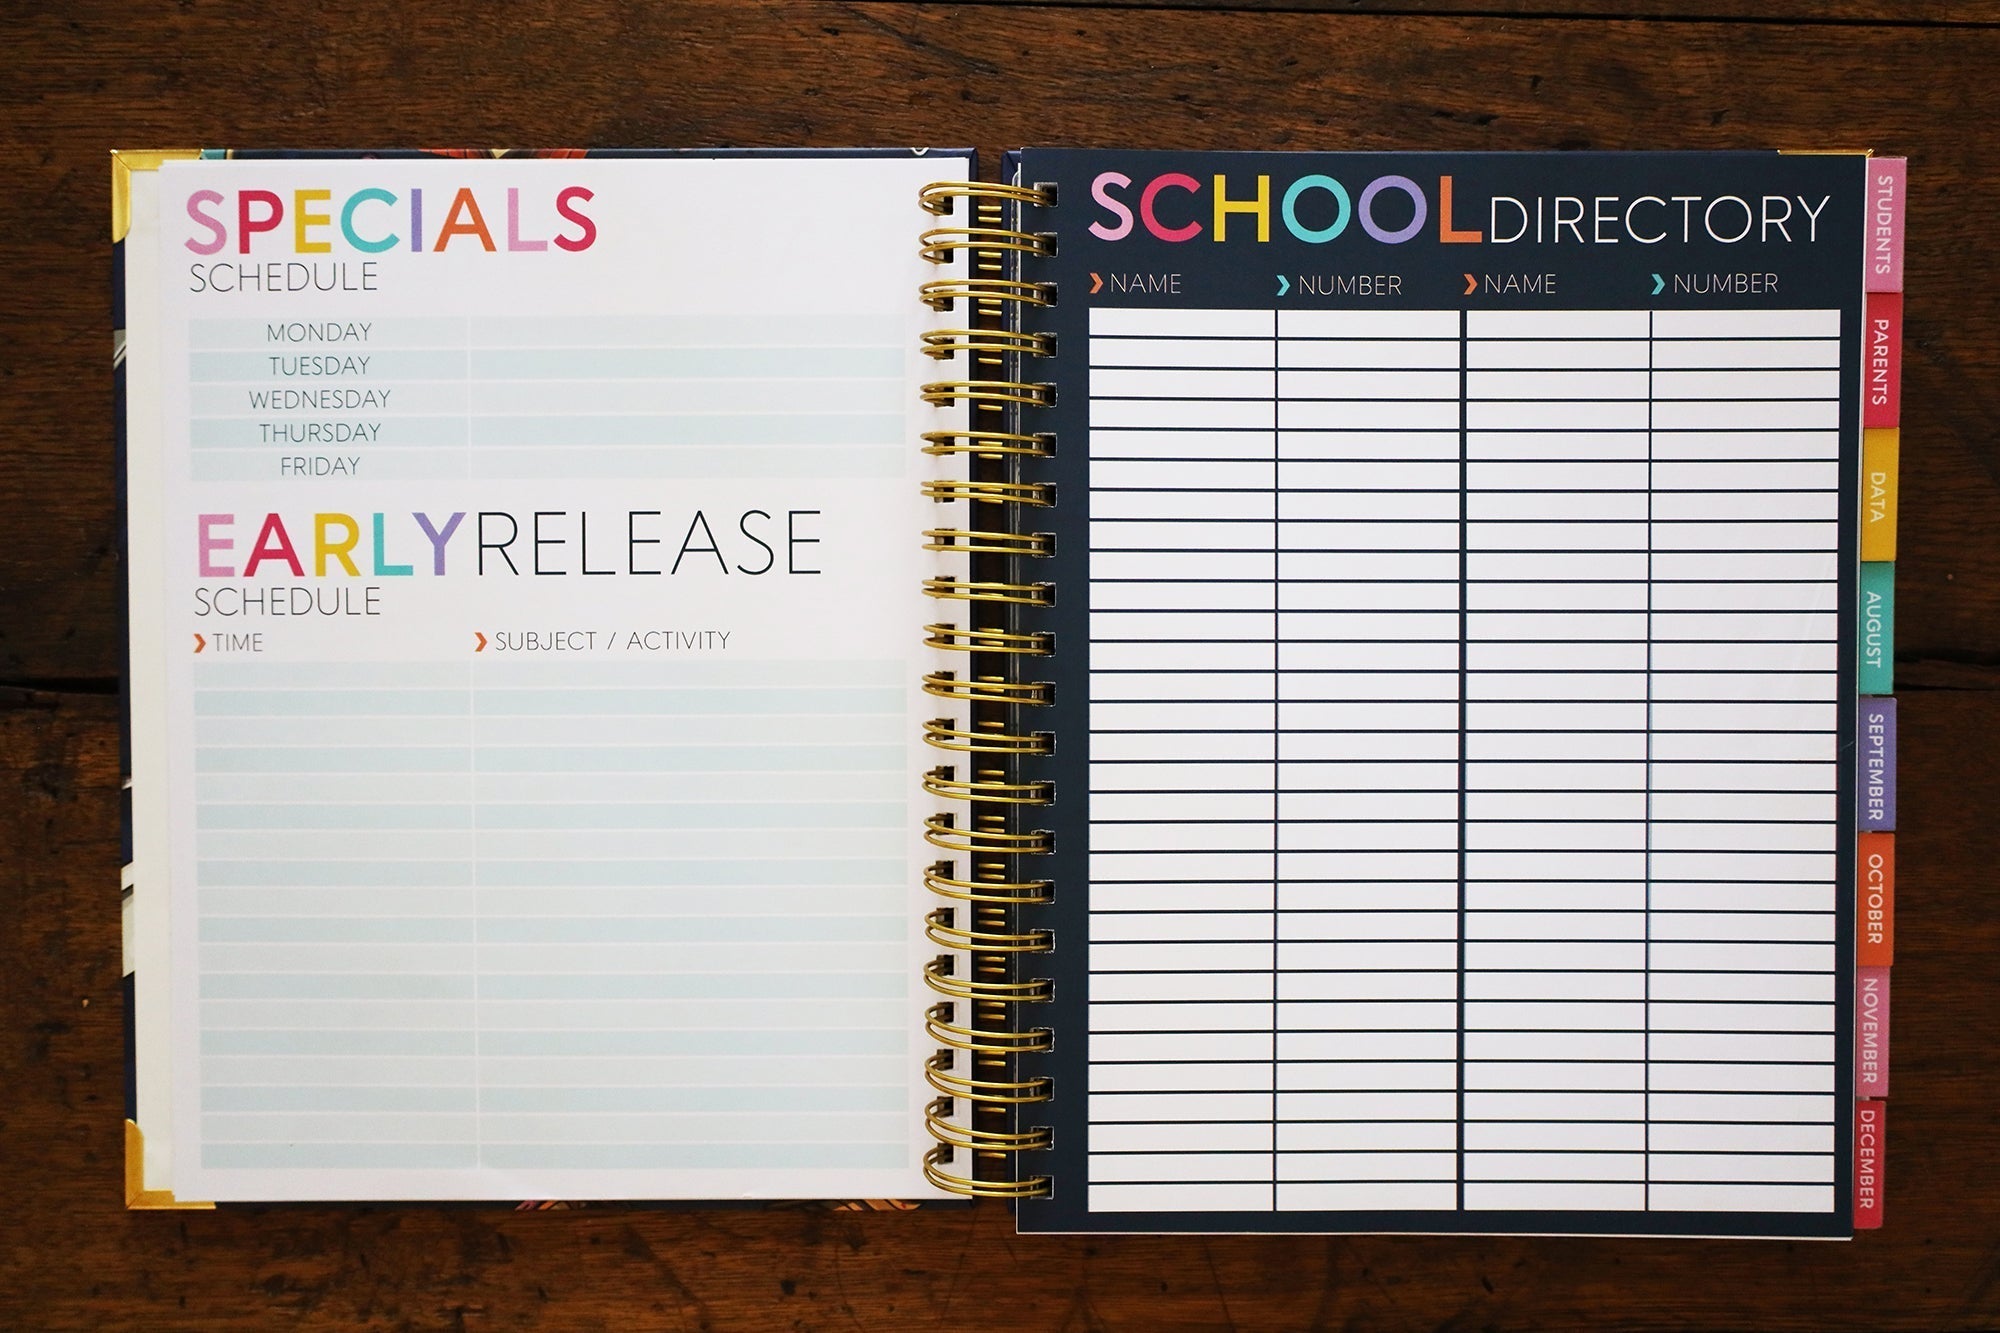 SPECIALS
SCHEDULE
MONDAY
TUESDAY
WEDNESDAY
THURSDAY
FRIDAY
EARLYRELEASE
SCHEDULE
TIME SUBJECT / ACTIVITY
SCHOOLDIRECTORY
NAME NUMBER NAME NUMBER
STUDENTS
PARENTS
DATA
AUGUST
SEPTEMBER
OCTOBER
NOVEMBER
DECEMBER